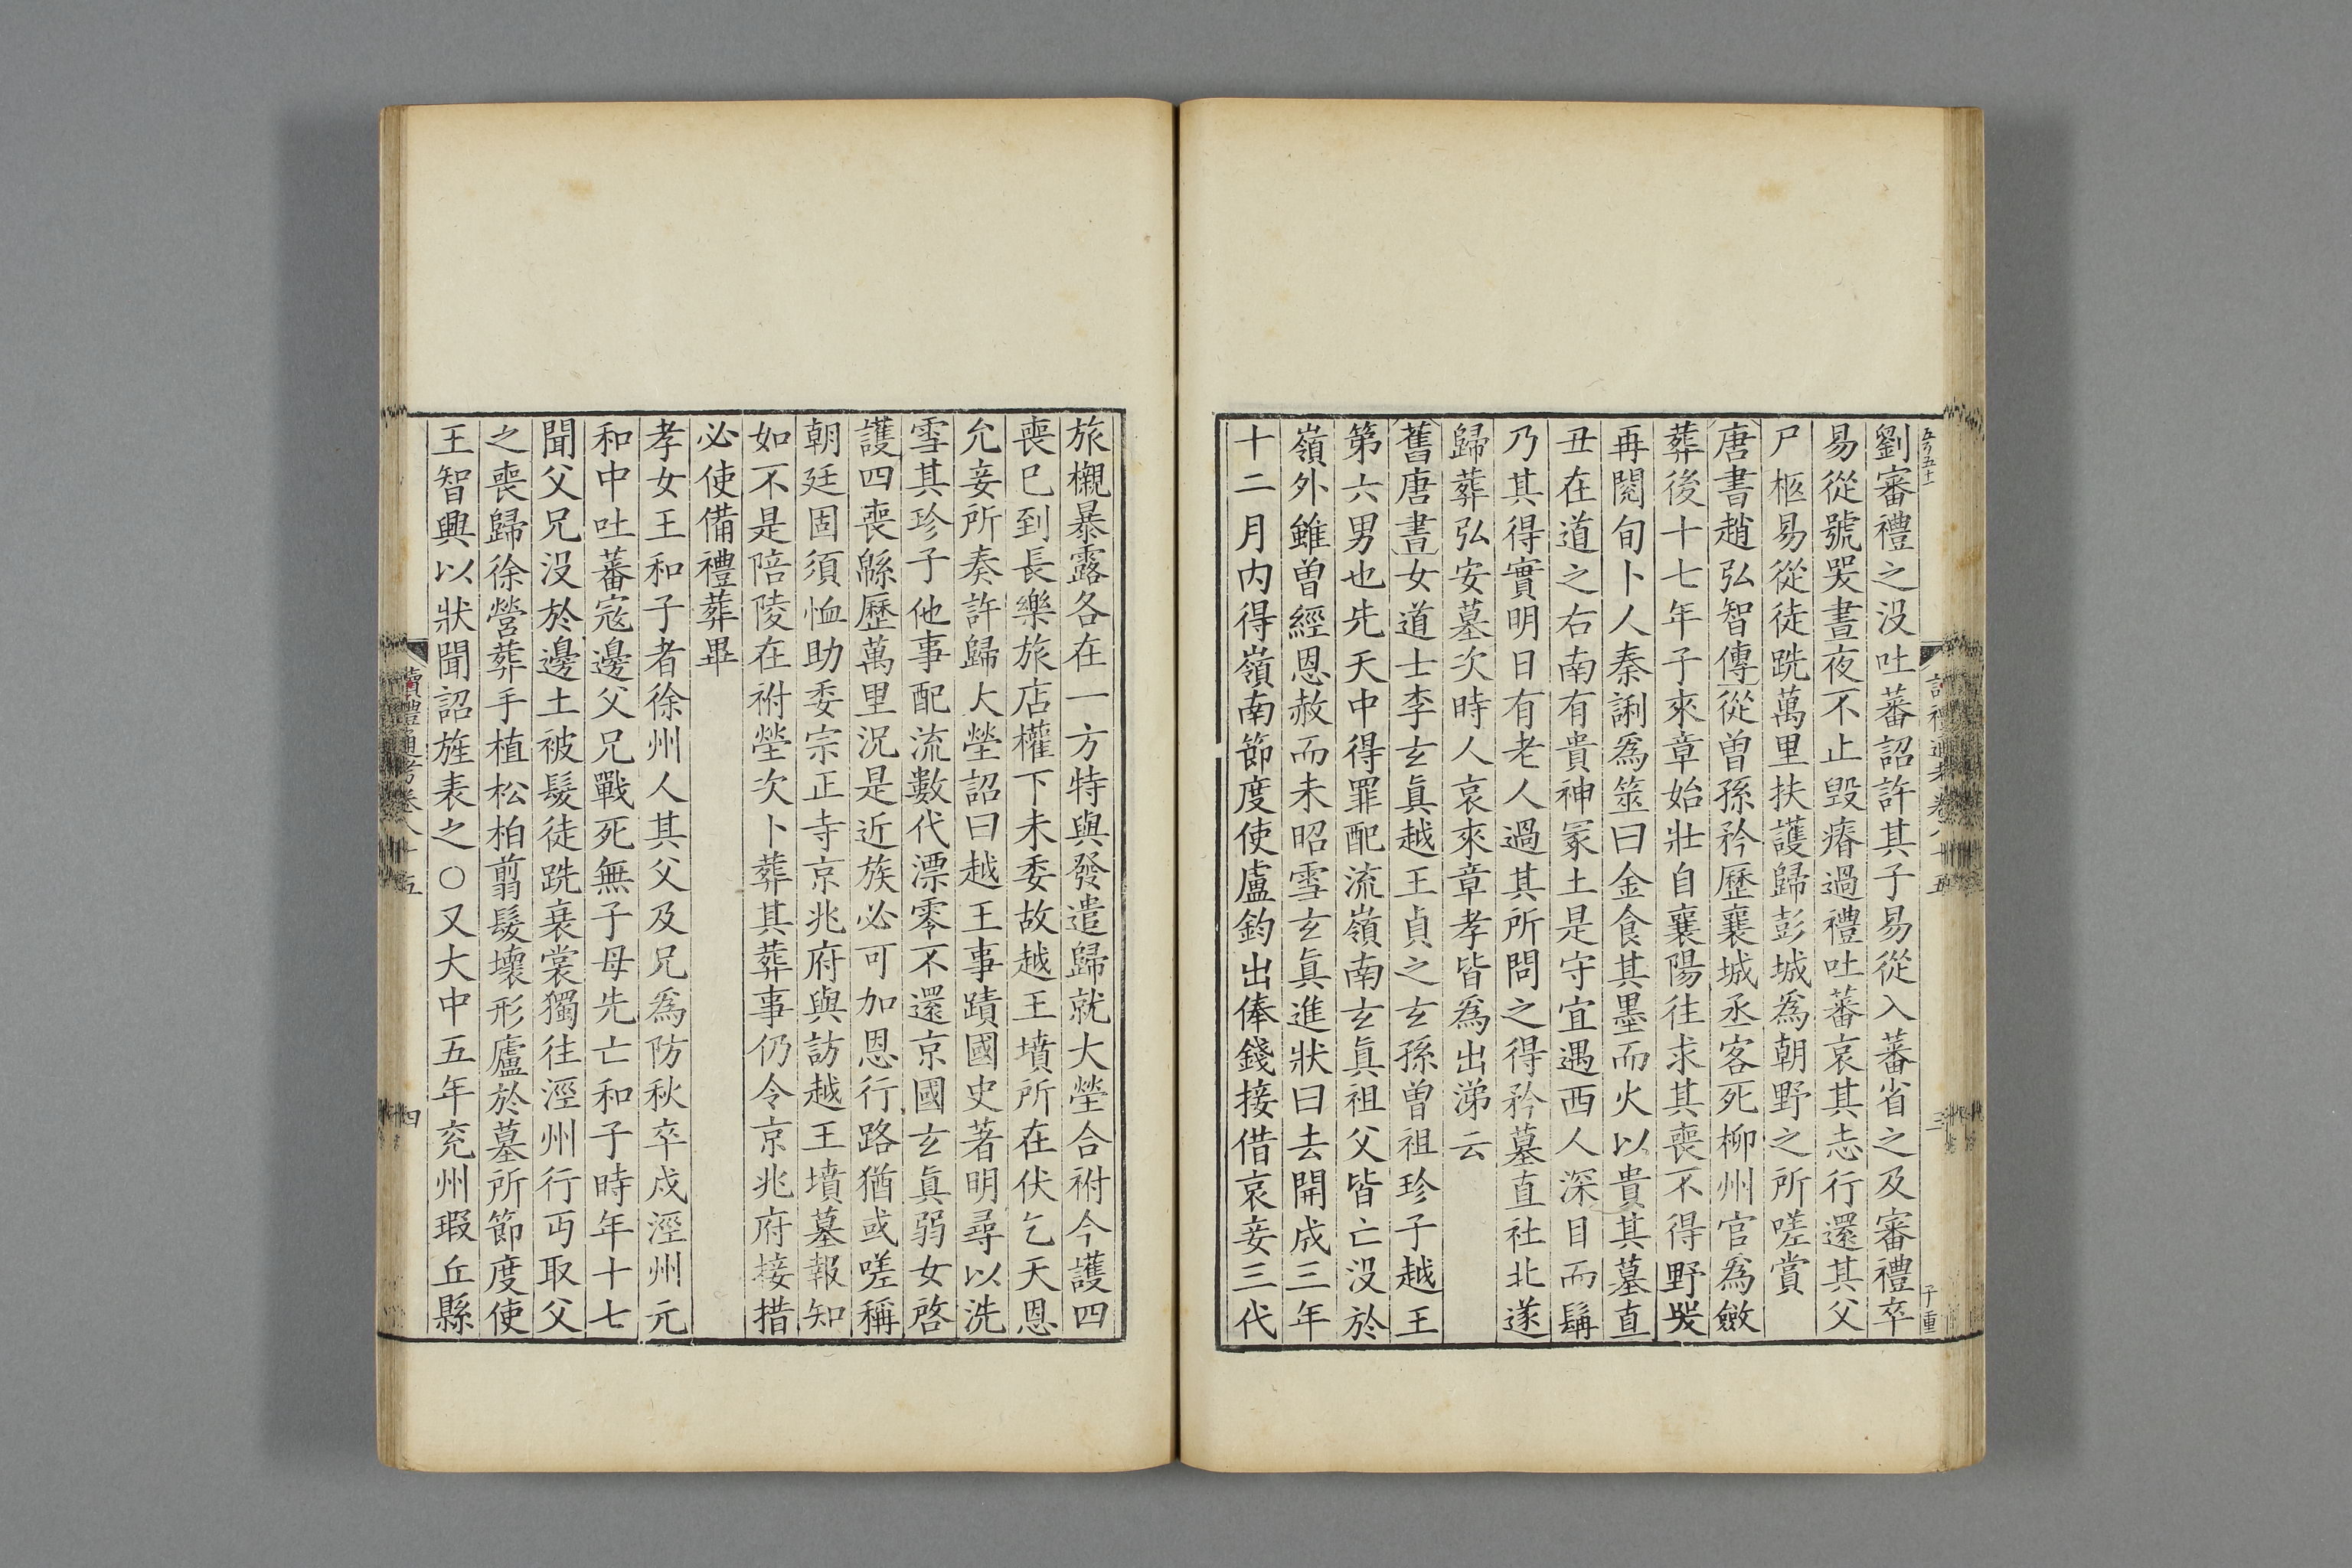 劉審禮之没吐蕃詔許其子易從入蕃省之及審禮卒
易從號哭晝夜不止毁瘠過禮吐蕃哀其志行還其父
尸柩易從徒跣萬里扶護歸彭城爲朝野之所嗟賞
唐書趙弘智傳從曾孫矜歷襄城丞客死柳州官爲斂
葬後十七年子來章始壯自襄陽往求其喪不得野哭
再閱旬卜人秦誗爲筮曰金食其墨而火以貴其墓直
丑在道之右南有貴神冢土是守宜遇西人深目而髯
乃其得實明日有老人過其所問之得矜墓直社北遂
歸葬弘安墓次時人哀來章孝皆爲出涕云
舊唐書女道士李玄眞越王貞之玄孫曾祖珍子越王
第六男也先天中得罪配流嶺南玄眞祖父皆亡没於
嶺外雖曾經恩赦而未昭雪玄眞進狀曰去開成三年
十二月内得嶺南節度使盧鈞出俸錢接借哀妾三代
旅櫬暴露各在一方特與發遣歸就大塋合祔今護四
喪已到長樂旅店權下未委故越王墳所在伏乞天恩
允妾所奏許歸大塋詔曰越王事蹟國史著明尋以洗
雪其珍子他事配流數代漂零不還京國玄眞弱女啓
護四喪緜歷萬里況是近族必可加恩行路猶或嗟稱
朝廷固須恤助委宗正寺京兆府與訪越王墳墓報知
如不是陪陵在祔塋次卜葬其葬事仍令京兆府接措
必使備禮葬畢
孝女王和子者徐州人其父及兄爲防秋卒戍涇州元
和中吐蕃寇邊父兄戰死無子母先亡和子時年十七
聞父兄没於邊土被髮徒跣衰裳獨往涇州行丐取父
之喪歸徐營葬手植松柏翦髮壞形廬於墓所節度使
王智興以狀聞詔旌表之○又大中五年兖州瑕丘縣
讀禮通考卷八十五
四